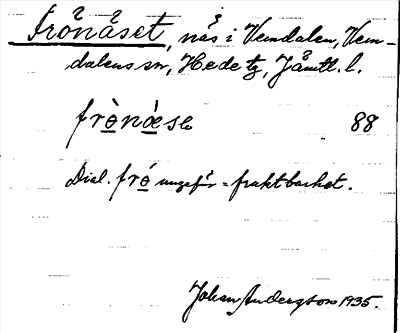 Frönåset, nås i Vemdalen, Vem-
dalens sn, Hede tg, Jämtl. l.
frò̱nàe̱se 88
Dial. fró̱ ungefär = fruktbarhet.
Johan Anderson 1935.